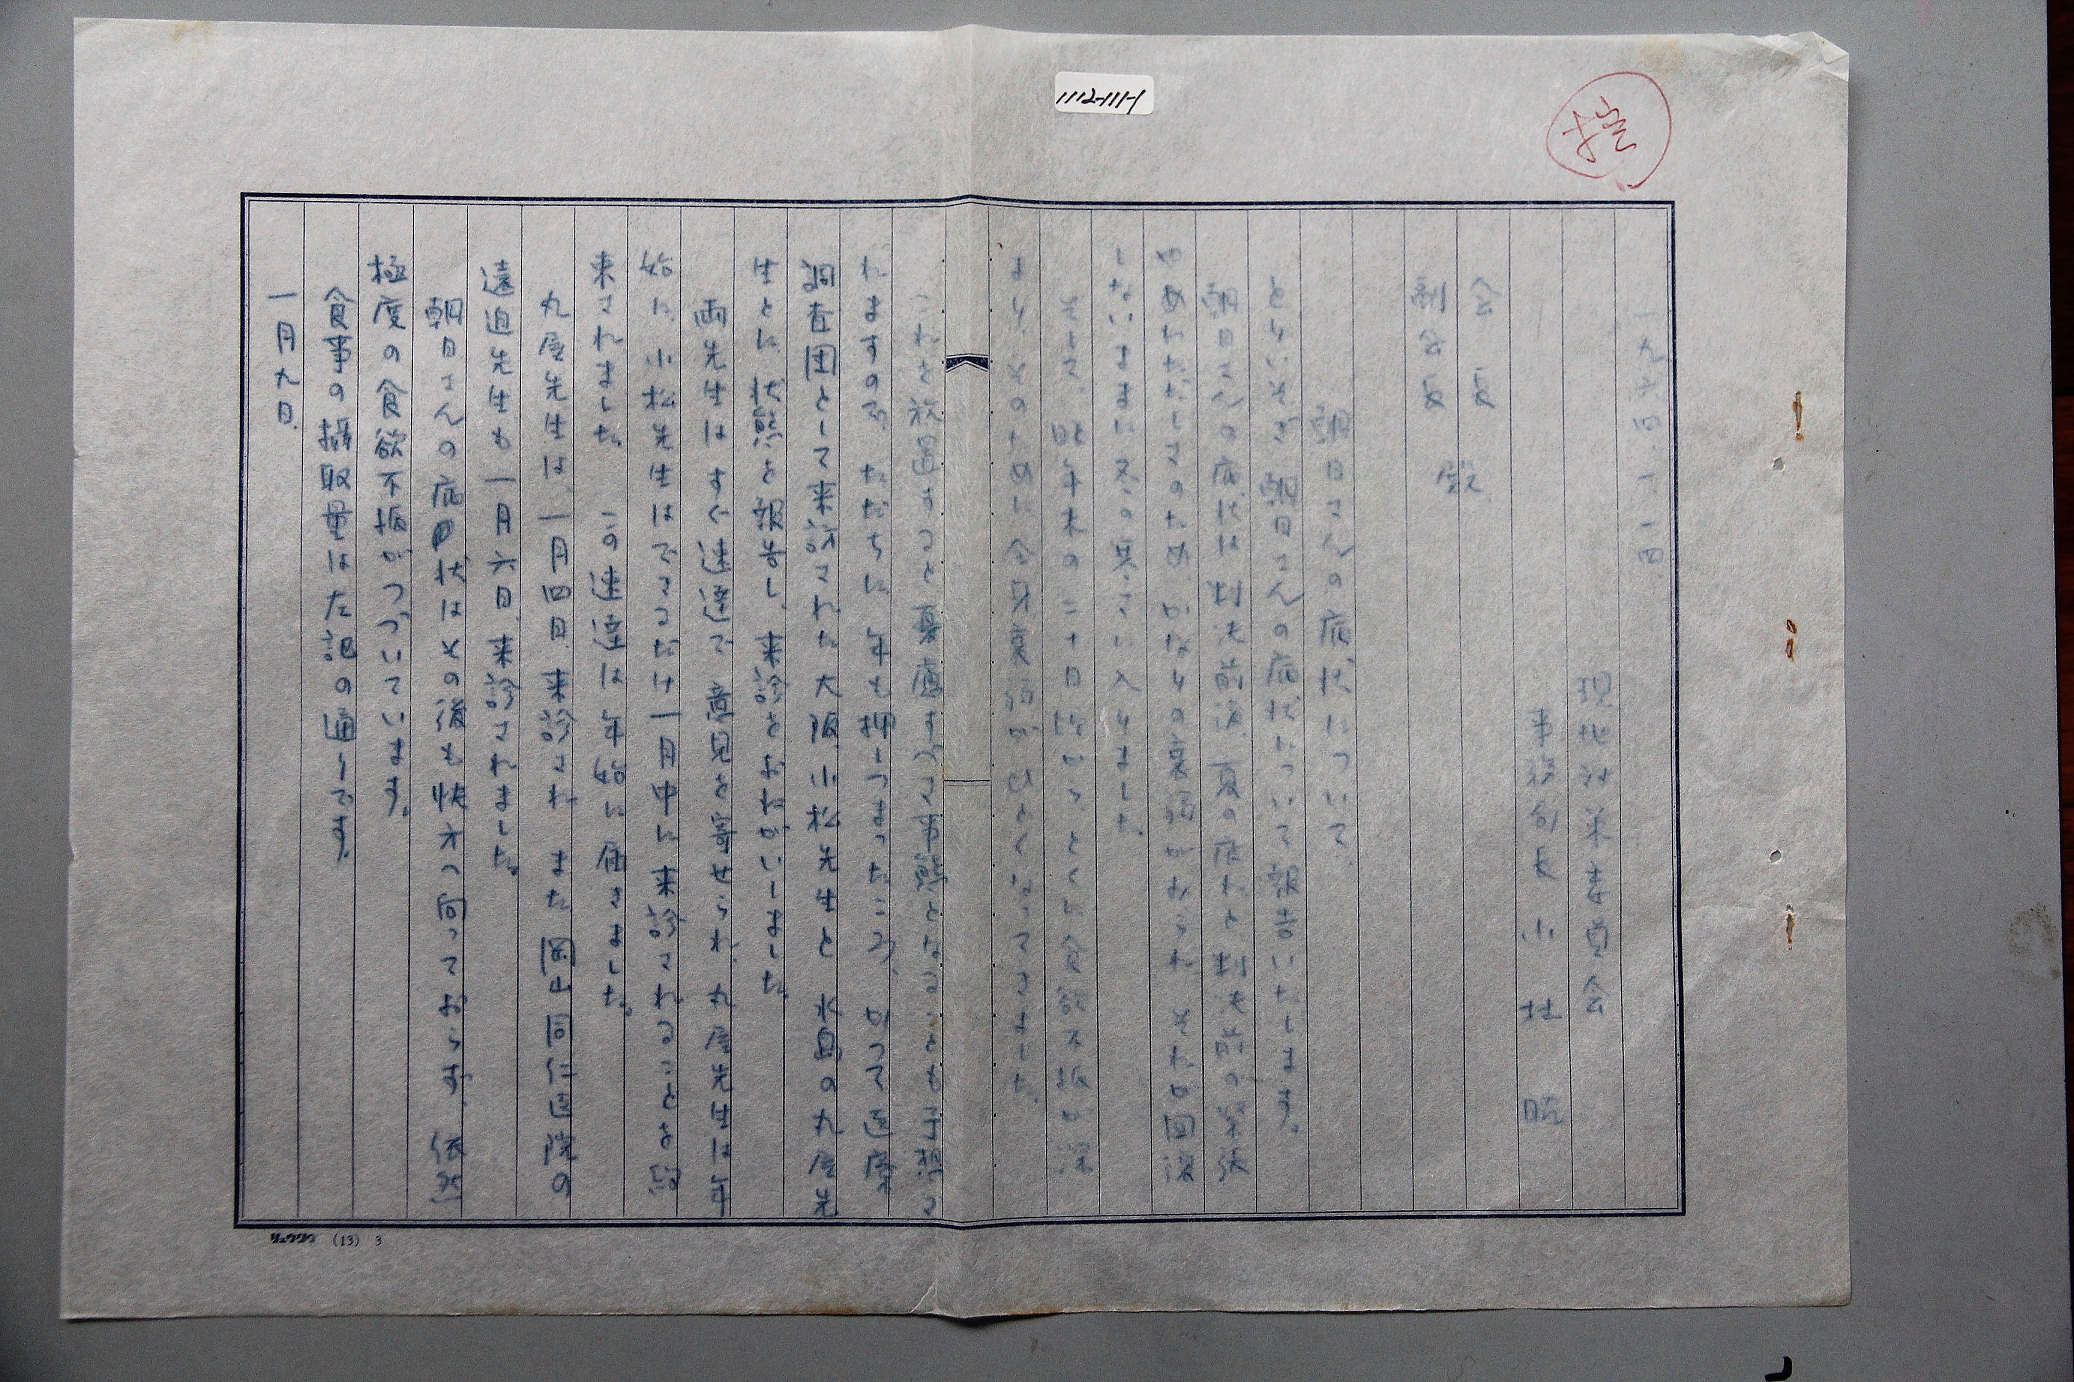 1112-111-1
一九六四、一、一四、
現地対策委員会
事務局長 小林 晄
会長
副会長
殿
朝日さんの病状について
とりいそぎ、朝日さんの病状について報告いたします。
朝日さんの病状は判決前後、夏の疲れと判決前の緊張
のあれただしさのため、かなりの衰弱がみられ、それが回復
しないままに冬の寒さに入りました。
そして、昨年末の二十日頃から、とくに食欲不振が深
まり、そのために全身衰弱がひどくなってきました。
これを放置すると憂慮すべき事態となることも予想さ
れますので、ただちに、年も押しつまったころ、かつて医療
調査団として来訪された大阪、小松先生と、水島の丸屋先
生とに、状態を報告し、来診をおねがいしました。
両先生はすぐ速達で、意見を寄せられ、丸屋先生は年
始に、小松先生はできるだけ一月中に来診されることを約
来されました。この速達は年始に届きました。
丸屋先生は、一月四日、来診され、また岡山同仁医院の
遠迫先生も一月六日、来診されました。
朝日さんの病状はその後も快方へ向っておらず、依然
極度の食欲不振がつづいています。
食事の摂取量は左記の通りです。
一月九日、
リュウワウ (13) 3